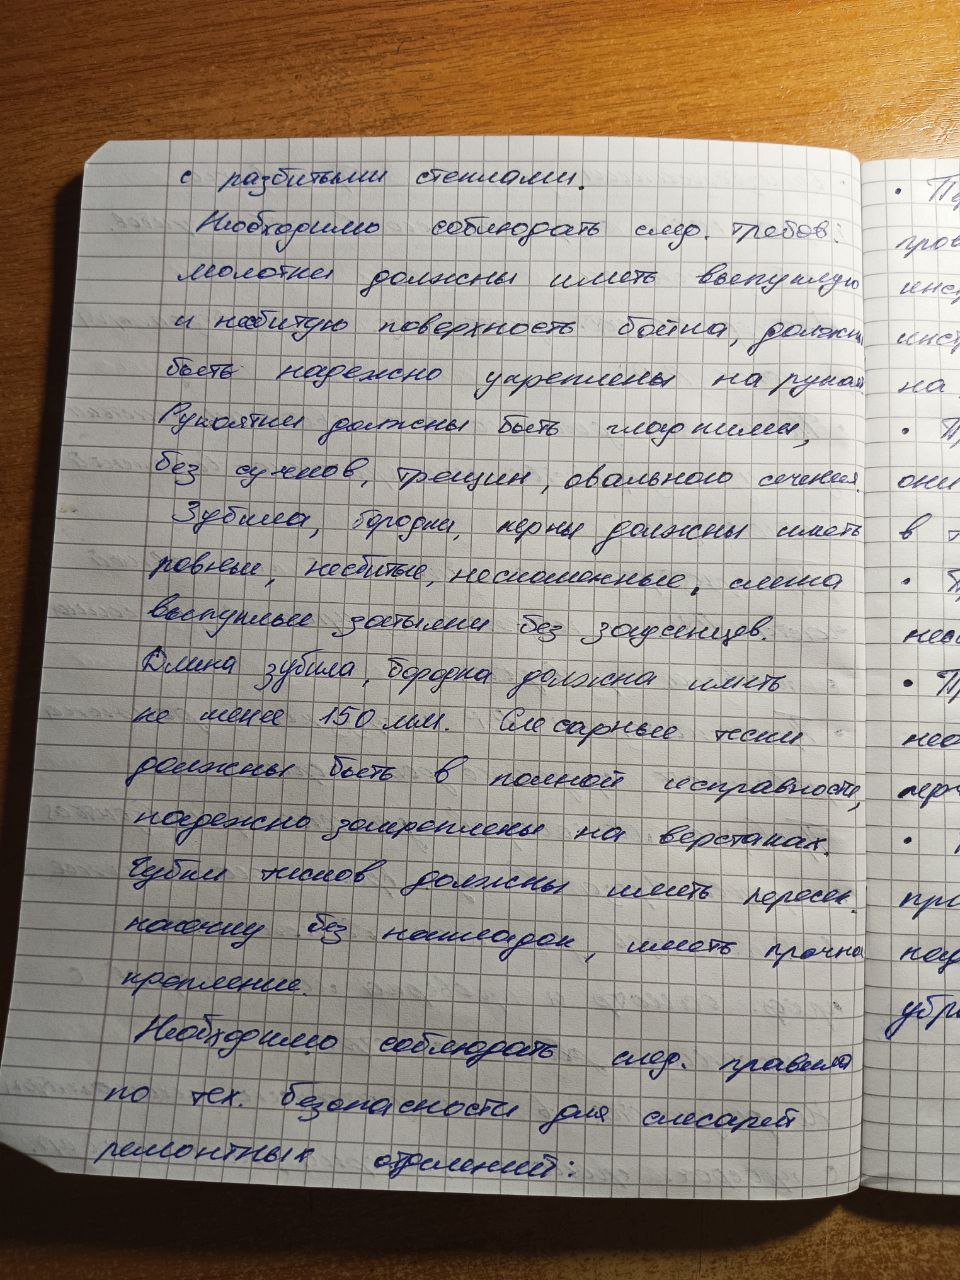 с разбитыми стеклами.
Необходимо соблюдать след. требов:
молотки должны иметь выпуклую
и несбитую поверхность бойка, должны
быть надежно укреплены на
Рукоятки должны быть гладкими,
без сучков, трещин, овального сечения.
Зубила, бородки, керны должны иметь
ровные, несбитые, нескошенные, слегка
выпуклые затылки без заусенцев.
Длина зубила, бородка должна иметь
не менее 150 мм. Слесарные тиски
должны быть в полной исправности,
надежно закреплены на верстаках.
Губки тисков должны иметь пересек.
насечку без накладок, иметь прочно
крепление.
Необходимо соблюдать след. правила
по тех. безопасности для слесарей
ремонтных отделений:
на
они
в
убр